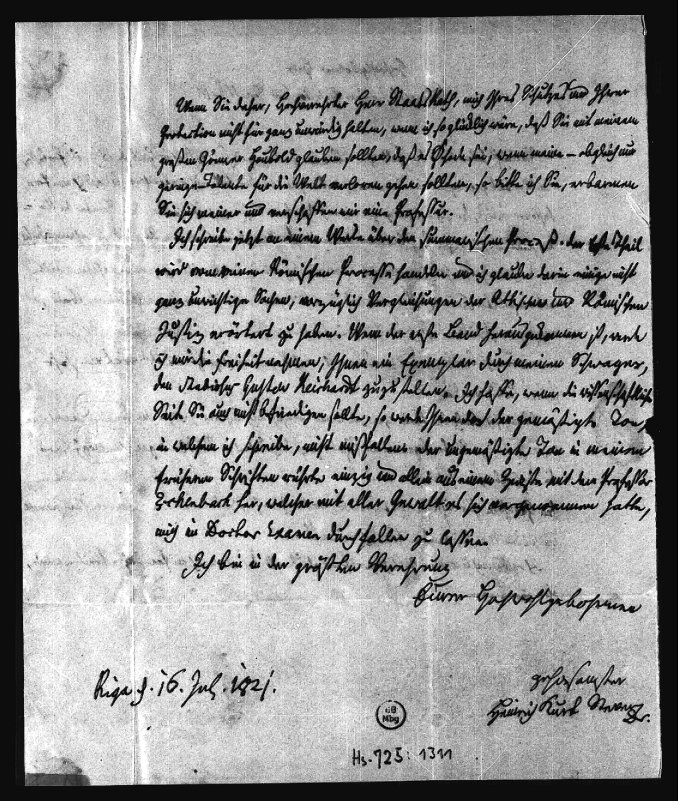 Wenn Sie daher, Hochverehrter Herr Staats Rath, mich Ihres Schutzes und Ihrer
Protection nicht für ganz unwürdig halten, wenn ich so glücklich wäre, daß Sie aus meinem
großen Gönner Haubold glauben sollten, daß es Schade sei, wenn meine – obgleich nur
geringen Talente für die Welt verloren gehen sollten, so bitte ich Sie, erbarmen
Sie sich meiner und verschaffen mir eine Professur.
Ich schreibe jetzt an einem Werke über den summarischen Proceß. der erste Theil
wird vom reinen Römischen Processe handeln und ich glaube darin einige nicht
ganz unwichtige Sachen, vorzüglich Vergleichungen der Attischen und Römischen
Justiz erörtert zu haben. Wenn der erste Band herausgekommen ist, werde
ich mir die Freiheit nehmen, Ihnen ein Exemplar durch meinen Schwager,
den Gaston Reichardt zuzustellen. Ich hoffe, wenn die wissenschaftliche
Seite Sie auch nicht befriedigen sollte, so wird Ihnen doch der gemäßigte Ton,
in welchem ich schreibe, nicht mißfallen. der ungemäßigte Ton in meinen
früheren Schriften rührte einzig und allein aus einem Zwiste mit dem Professor
her, welcher mit aller Gewalt es sich vorgenommen hatte,
mich im Doctor Examen durchfallen zu lassen.
Ich bin in der größten Verehrung
Eurer Hochwohlgebohrnen
Riga d. 16. Jul. 1821.
gehorsamster
Heinrich Kurt
UB
Mbg
Hs. 725: 1311